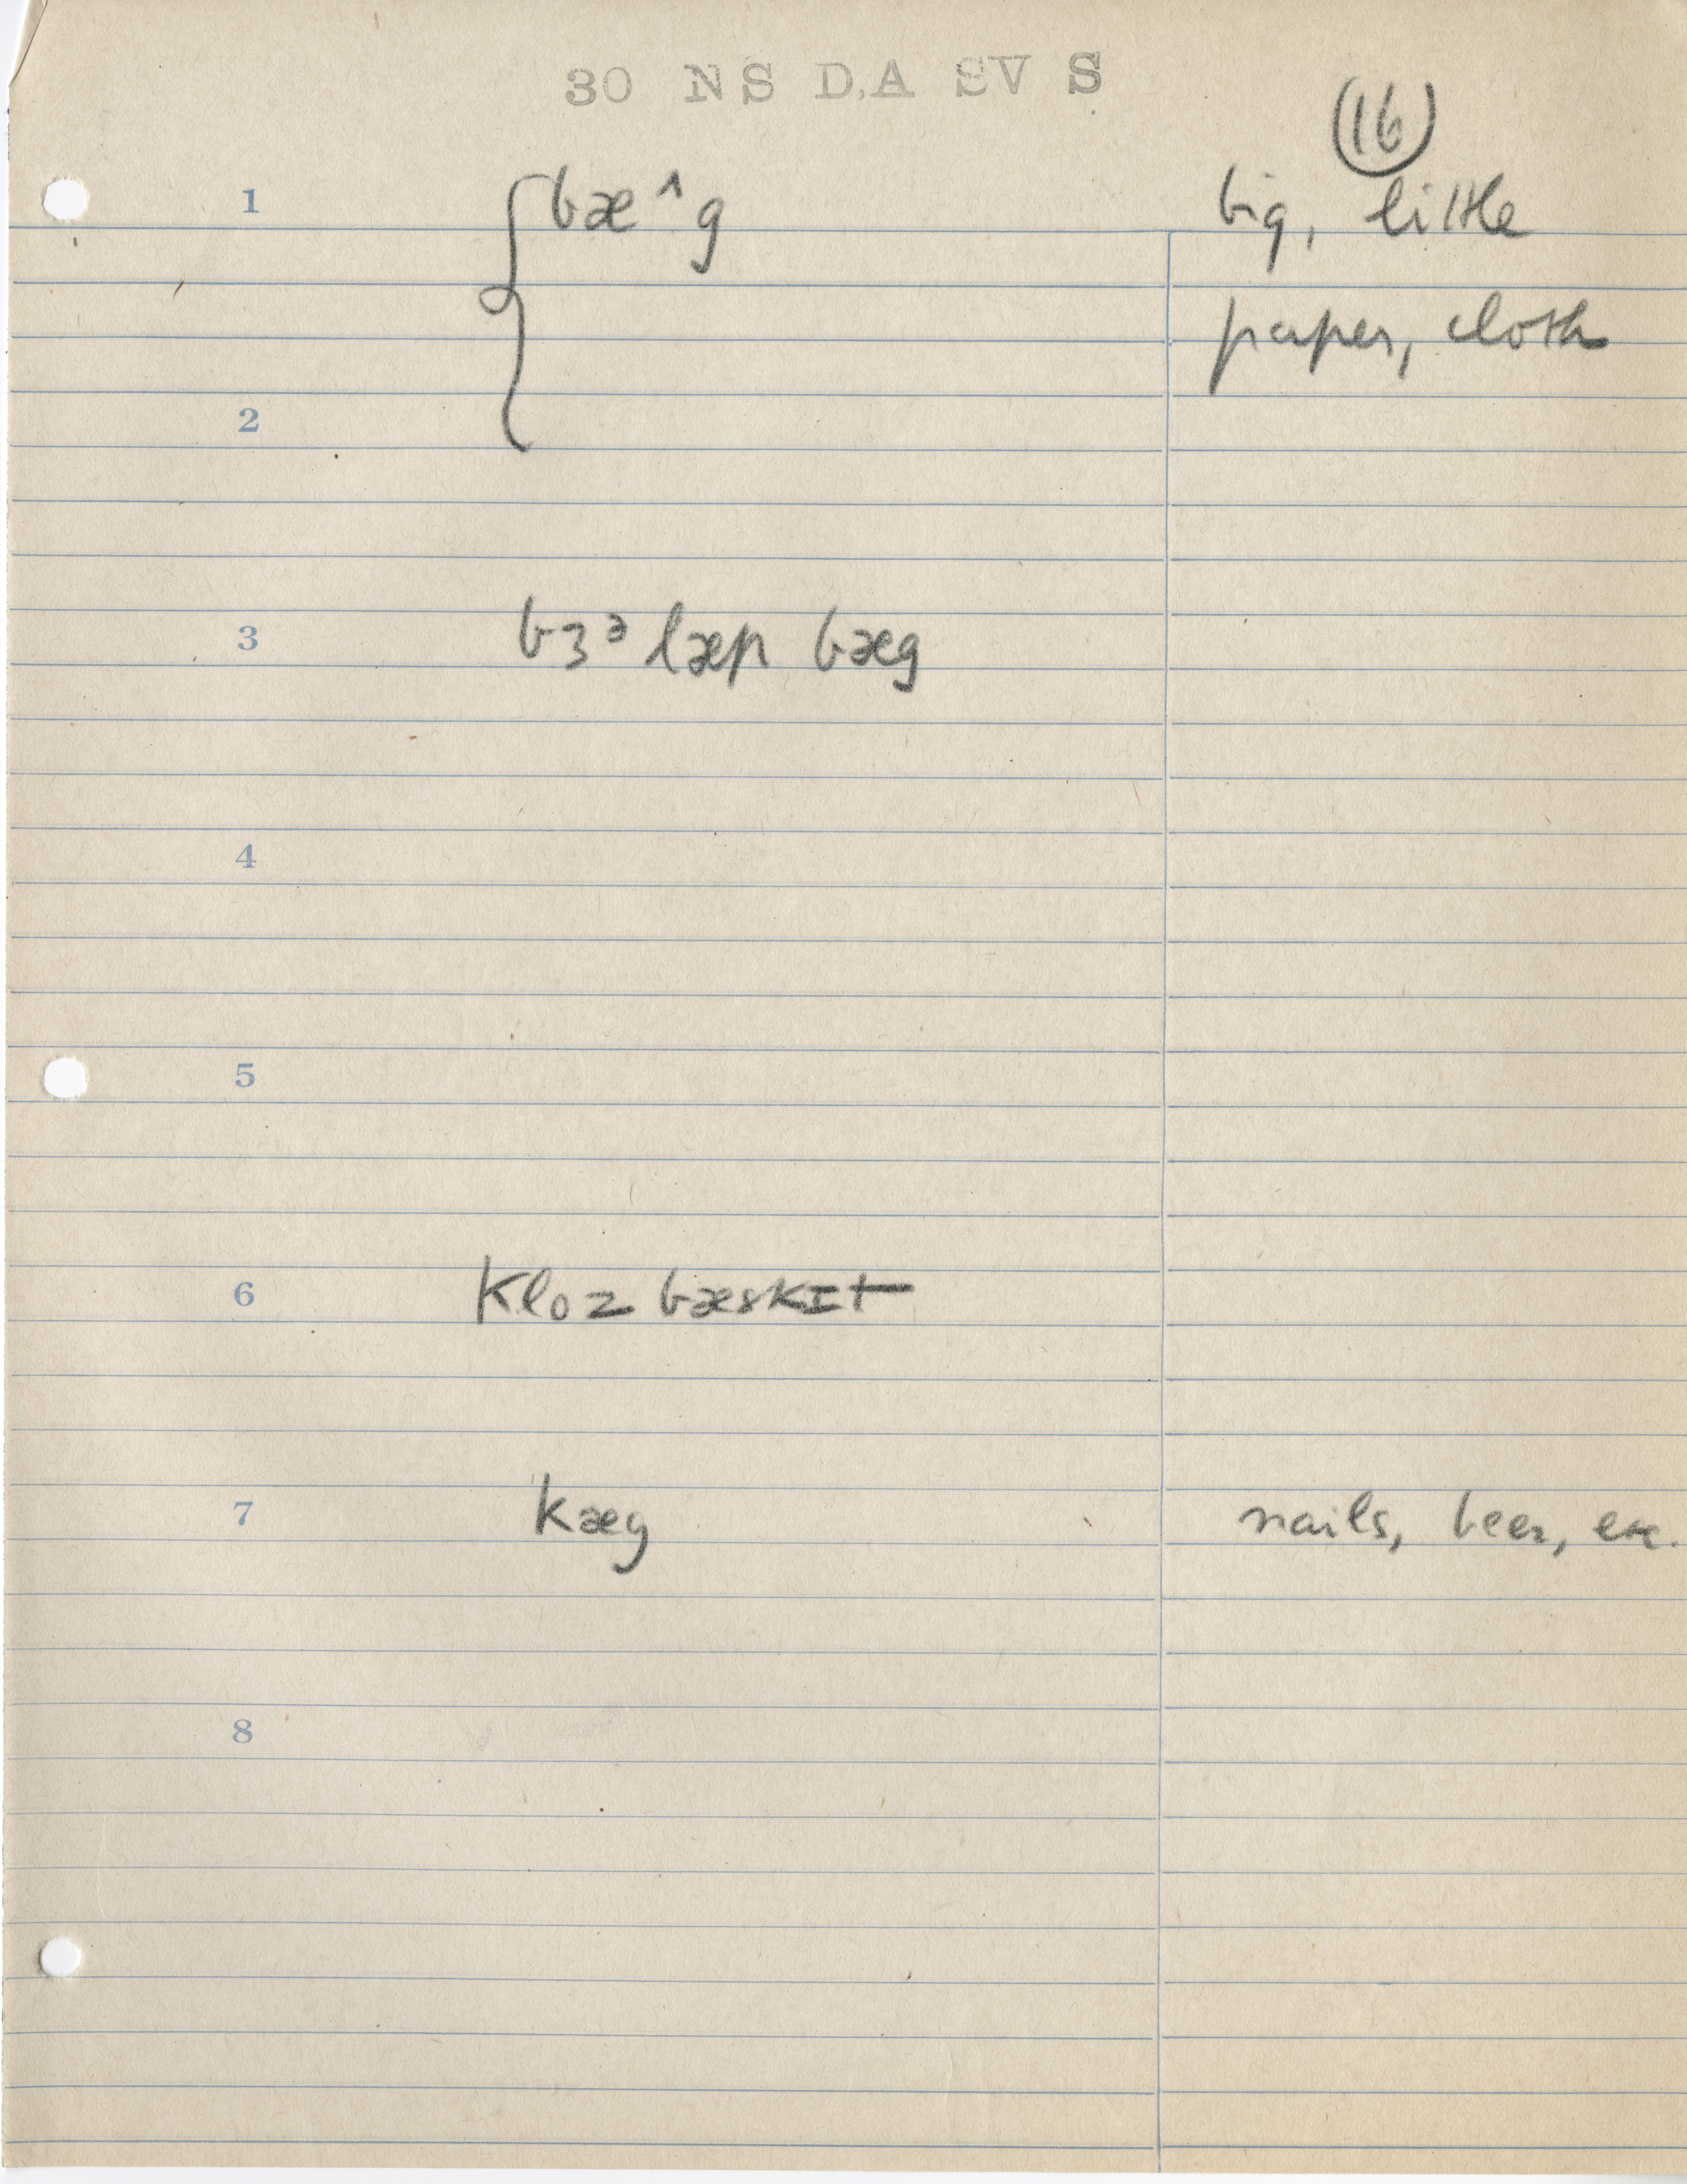 30 NS D.A SV S
(16)
1 bæ^g big, little
paper, cloth
2
3 bɜᵊlæp bæg
4
5
6 kloz bæskɪt
7 kæg nails, beer, etc.
8